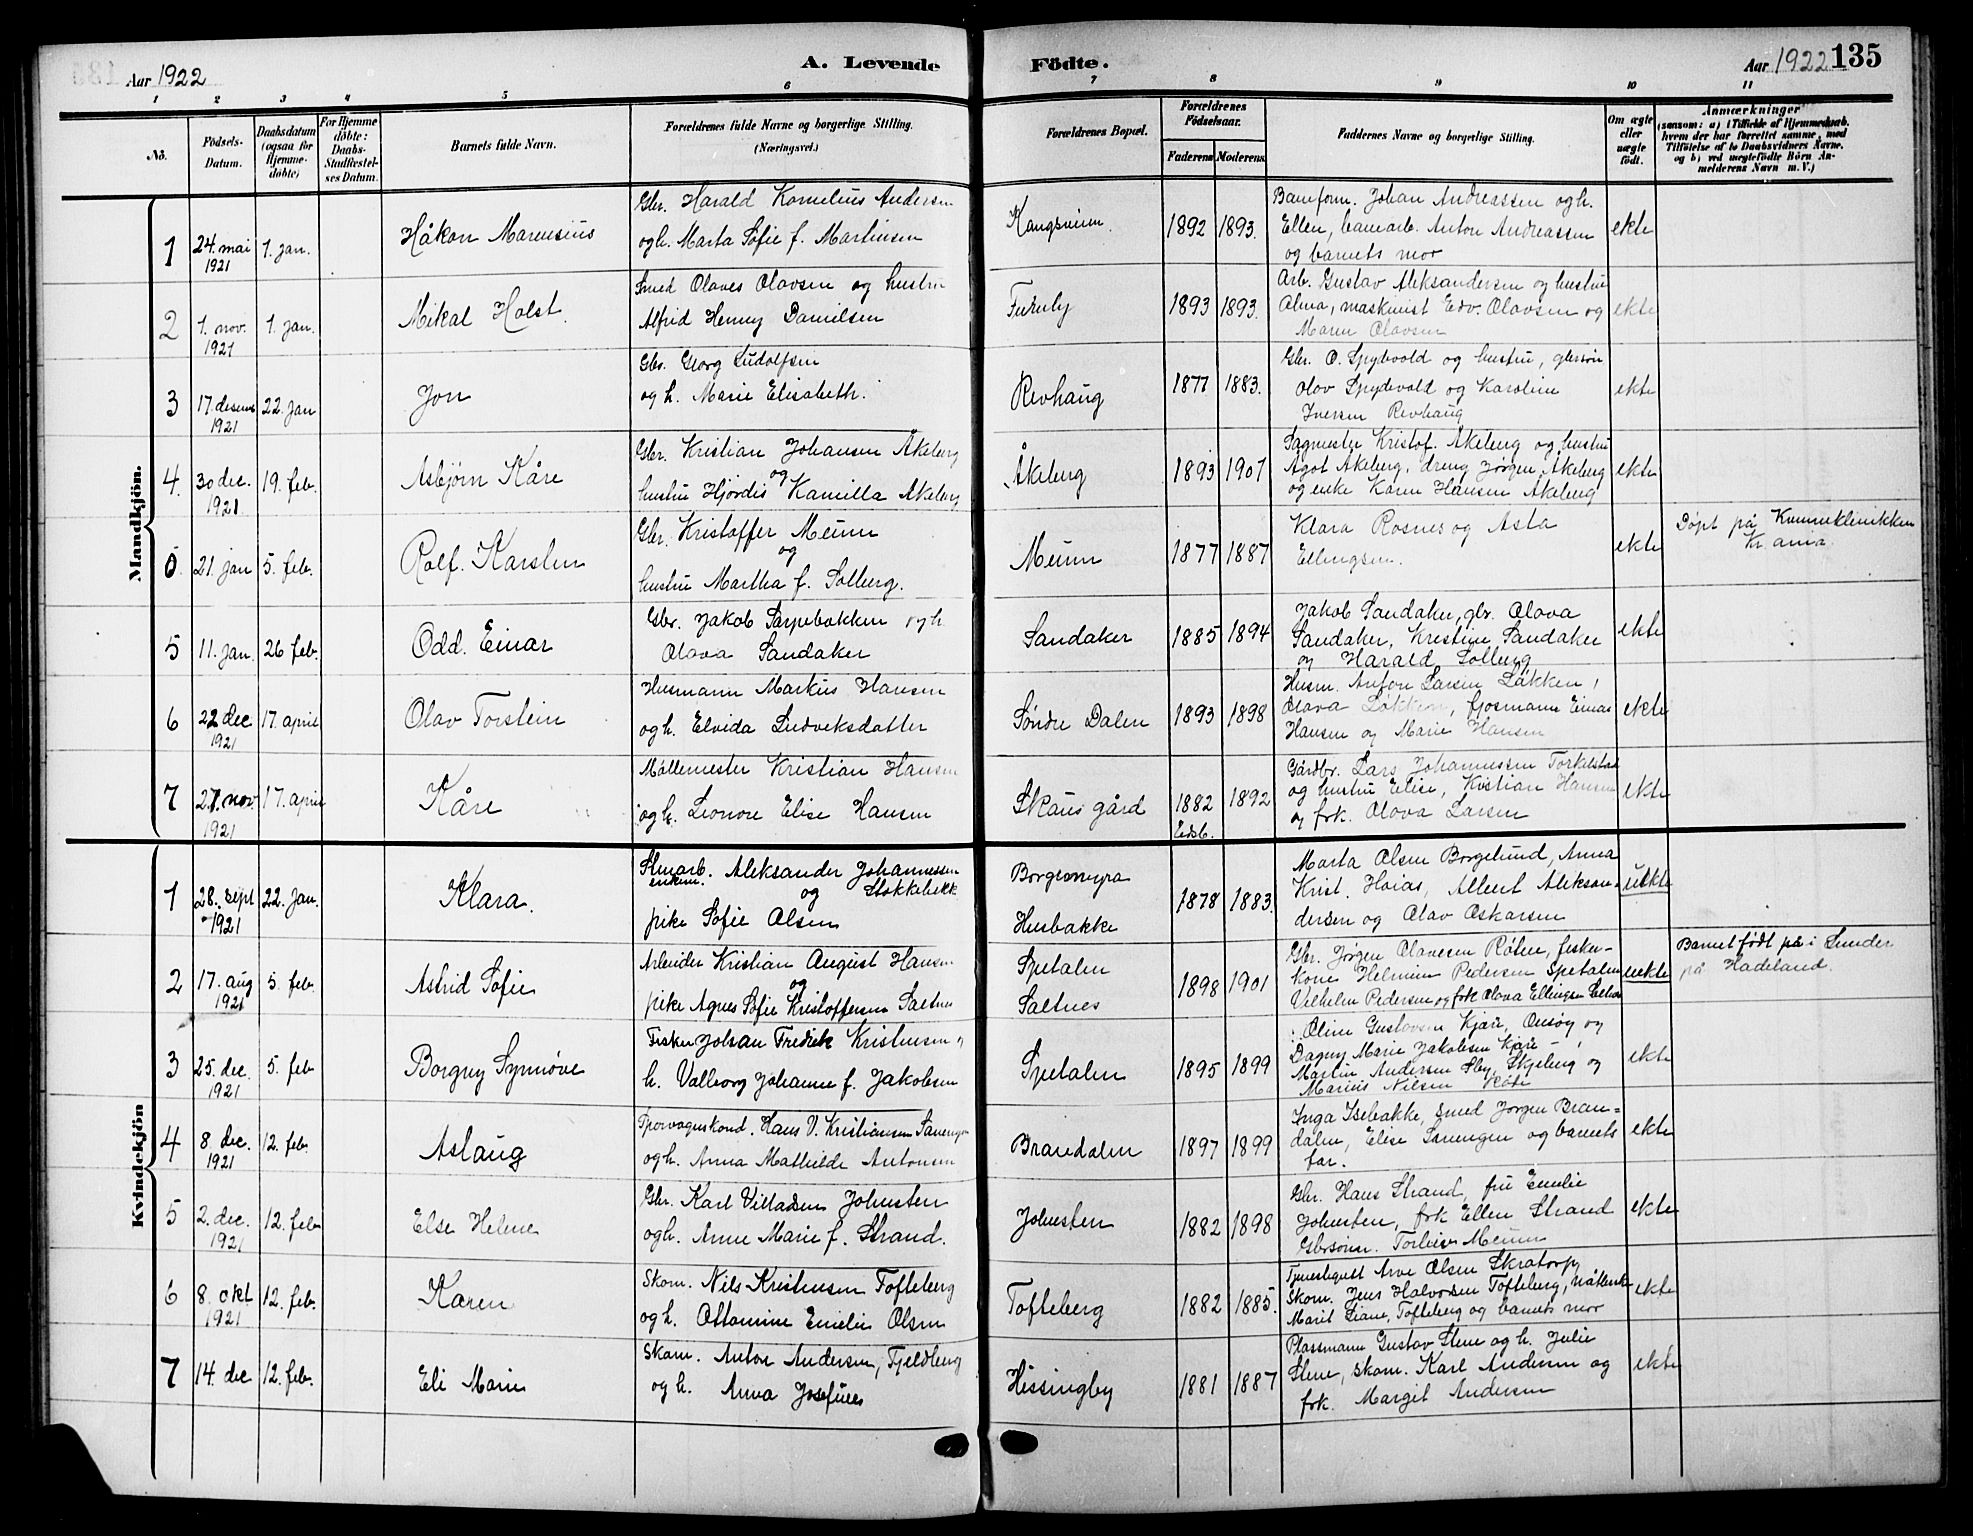 Aar 1922
A. Levende Fødte.
Aar 1922 135
1 2 3 4 5 6 7 8 9 10 11
No.
Fødsels-Datum.
Daabsdatum (ogsaa for Hjemme-døbte)
For Hjemme døbte: Daabs-Stadfæstel-ses Datum.
Barnets fulde Navn.
Forældrenes fulde Navne og borgerlige Stilling. (Næringsvei.)
Forældrenes Bopæl.
Forældrenes Fødselsaar.
Faderens Moderens.
Faddernes Navne og borgerlige Stilling.
Om ægte eller uægte født.
Anmærkninger
(saasom: a) i Tilfælde af Hjemmedaab.
hvem der har forrettet samme, med
Tilføielse af to Daabsvidners Navne.
og b) ved uægtefødte Børn An-
melderens Navn m. V.)
Mandkjön.
1 24. mai 1921 1. jan.
Håkon Marensius
Gbr. Harald Kornelius Andersen
og h. Marta Sofie f. Martinsen
1892 1893.
Baneform. Johan Andreassen og h.
Ellen, banearb. Anton Andreassen
og barnets mor
ekte
2 1. nov. 1921 1. jan.
Mikal Holst.
Smed Olaves Olavsen og hustru
Alfrid Henny Danielsen
Furuly
1893 1893.
Arb. Gustav Aleksandersen og hustru
Alma, maskinist Edv. Olavsen og
Maren Olavsen
ekte
3 17. desemb 1921 22. jan
Jon
Gbr. Georg Ludolfsen
og h. Marie Elisabeth.
Revhaug
1877 1883.
Gbr. O. Spydevold og hustru, gbrsøn
Olav Spydevold og Karoline
Iversen Revhaug
ekte
4. 30 dec. 1921 19. feb.
Asbjørn Kåre
Gbr. Kristian Johansen Åkeberg
og
hustru Hjørdis Kamilla Åkeberg
Åkeberg
1893 1901
Sagmester Kristof. Åkeberg og hustru
Agot Åkeberg, dreng Jørgen Åkeberg
og enke Karen Hansen Åkeberg
ekte
21. jan 5. feb.
Rolf. Karsten
Gbr. Kristoffer Meum
og
hustru Martha f. Solberg.
Meum
1877 1887
Klara Rosnes og Asta
Ellingsen.
ekte
Døpt på Kvinneklinikken
Kr.ania.
5 11. jan. 26 feb.
Odd. Einar
Gbr. Jakob Sarpebakken og h.
Olava Sandaker
Sandaker
1885 1894
Jakob Sandaker, gbr. Olava
Sandaker, Kristine Sandaker
og Harald Solberg
ekte
6 22 dec 1921 17. april
Olav Torstein
Husmann Markus Hansen
og h. Elvida Ludviksdatter
Søndre Dalen
1893 1898
Husm. Anton Larsen Løkken,
Olava Løkken, fjøsmann Einar
Hansen og Marie Hansen
ekte
7 27. nov. 1921 17. april
Kåre
Møllemester Kristian Hansen
og h. Leonore Elise Hansen
Skaus gård
1882 1892
Eidsb.
Gårdbr. Lars Johannessen Torkelstad
og hustru Elise, Kristian Hansen
og frk. Olava Larsen
ekte
Kvindekjön
1 28. sept 1921 22. jan.
Klara.
Stenarb. Aleksander Johannessen
enkem. og Stokkebekk
pike Sofie Olsen
Borgemyra
Husbakke
1878 1883.
Marta Olsen Borgelund, Anna
Krist. Høiås, Albert Aleksan-
dersen og Olav Oskarsen
uekte
2 17. aug 1921 5. feb.
Astrid Sofie
Arbeider Kristian August Hansen
og
pike Agnes Sofie Kristoffersen Saltnes
Spetalen
Saltnes
1898 1901
Gbr. Jørgen Olavesen Røtne, fisker-
kone Helmine Pedersen Spetalen
Vilhelm Pedersen og frk Olava Ellingsen
uekte
Barnet født på i Lunder
på Hadeland.
3 25. dec. 1921 5. feb
Borgny Synnøve
Fisker Johan Fredrik Kristensen og
h. Valborg Johanne f. Jakobsen
Spetalen
1895 1899
Oline Gustavsen Kjære, Onsøy og
Dagny Marie Jakobsen Kjære
Martin Andersen Eby, Skjeberg og
Marius Nilsen
ekte
4 8 dec. 1921 12. feb.
Aslaug
Sporvognskond. Hans V. Kristiansen
og h. Anna Mathilde Antonsen
Brandalen
1897 1899
Inga Isebakke, smed Jørgen Bran-
dalen, Elise og barnets
far.
ekte
5 2. dec. 1921 12. feb
Else Helene
Gbr. Karl Villadsen Johnsten
og h. Anne Marie f. Strand.
Johnsten
1882 1898
Gbr. Hans Strand, fru Emilie
Johnsten, frk Ellen Strand
Gbrsønn. Torleif Meum
ekte
6 8. okt 1921 12. feb.
Karen
Skom. Nils Kristensen Tofteberg
og h. Ottomine Emilie Olsen
Tofteberg
1882 1885.
Tjenestegutt Arve Olsen Skratorp,
Skom. Jens Halvorsen Tofteberg,
Marit Liane, Tofteberg og barnets mor
ekte
7 14. dec 12. feb.
Eli Marie
Skom. Anton Andersen, Fjeldberg
og h. Anna Josefine
Hissingby
1881 1887
Plassmann Gustav Stene og h. Julie
Stene, skom. Karl Andersen og
frk. Margit Andersen
ekte